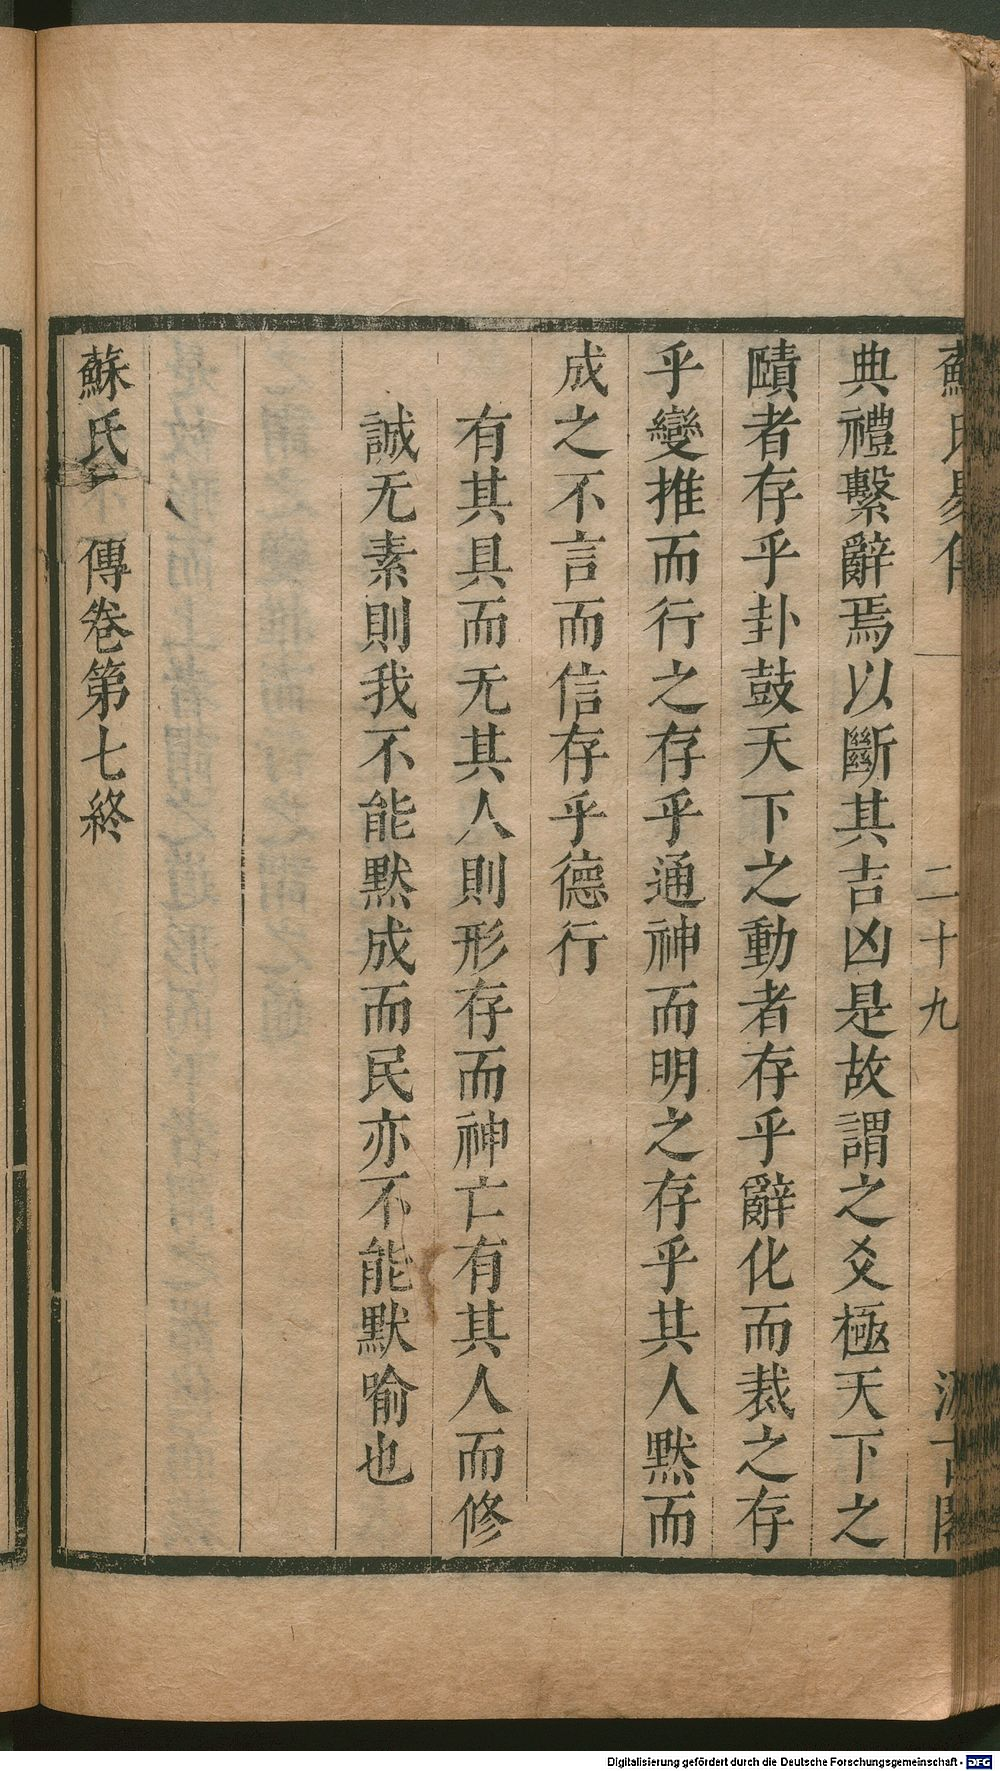 蘇氏易傳 二十九 汲古閣
典禮繫辭焉以斷其吉凶是故謂之爻極天下之
賾者存乎卦鼓天下之動者存乎辭化而裁之存
乎變推而行之存乎通神而明之存乎其人黙而
成之不言而信存乎德行
有其具而无其人則形存而神亡有其人而修
誠无素則我不能黙成而民亦不能默喻也
蘇氏 傳卷第七終
Digitalisierung gefördert durch die Deutsche Forschungsgemeinschaft - DFG